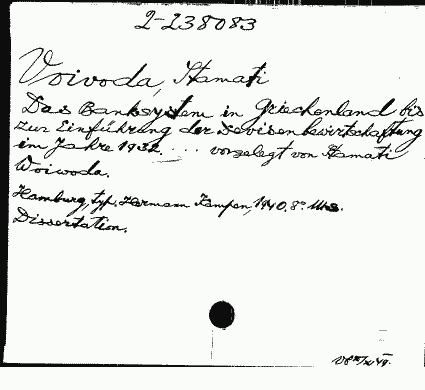 2-238083
Voivoda, Stamati
Das Banksystem in Griechenland bis
zur Einführung der Devisenbewirtschaftung
im Jahre 1932. ... vorgelegt von Stamati
Woiwoda.
Hamburg, typ. Hermann Kampen, 1940. 8°.
Dissertation.